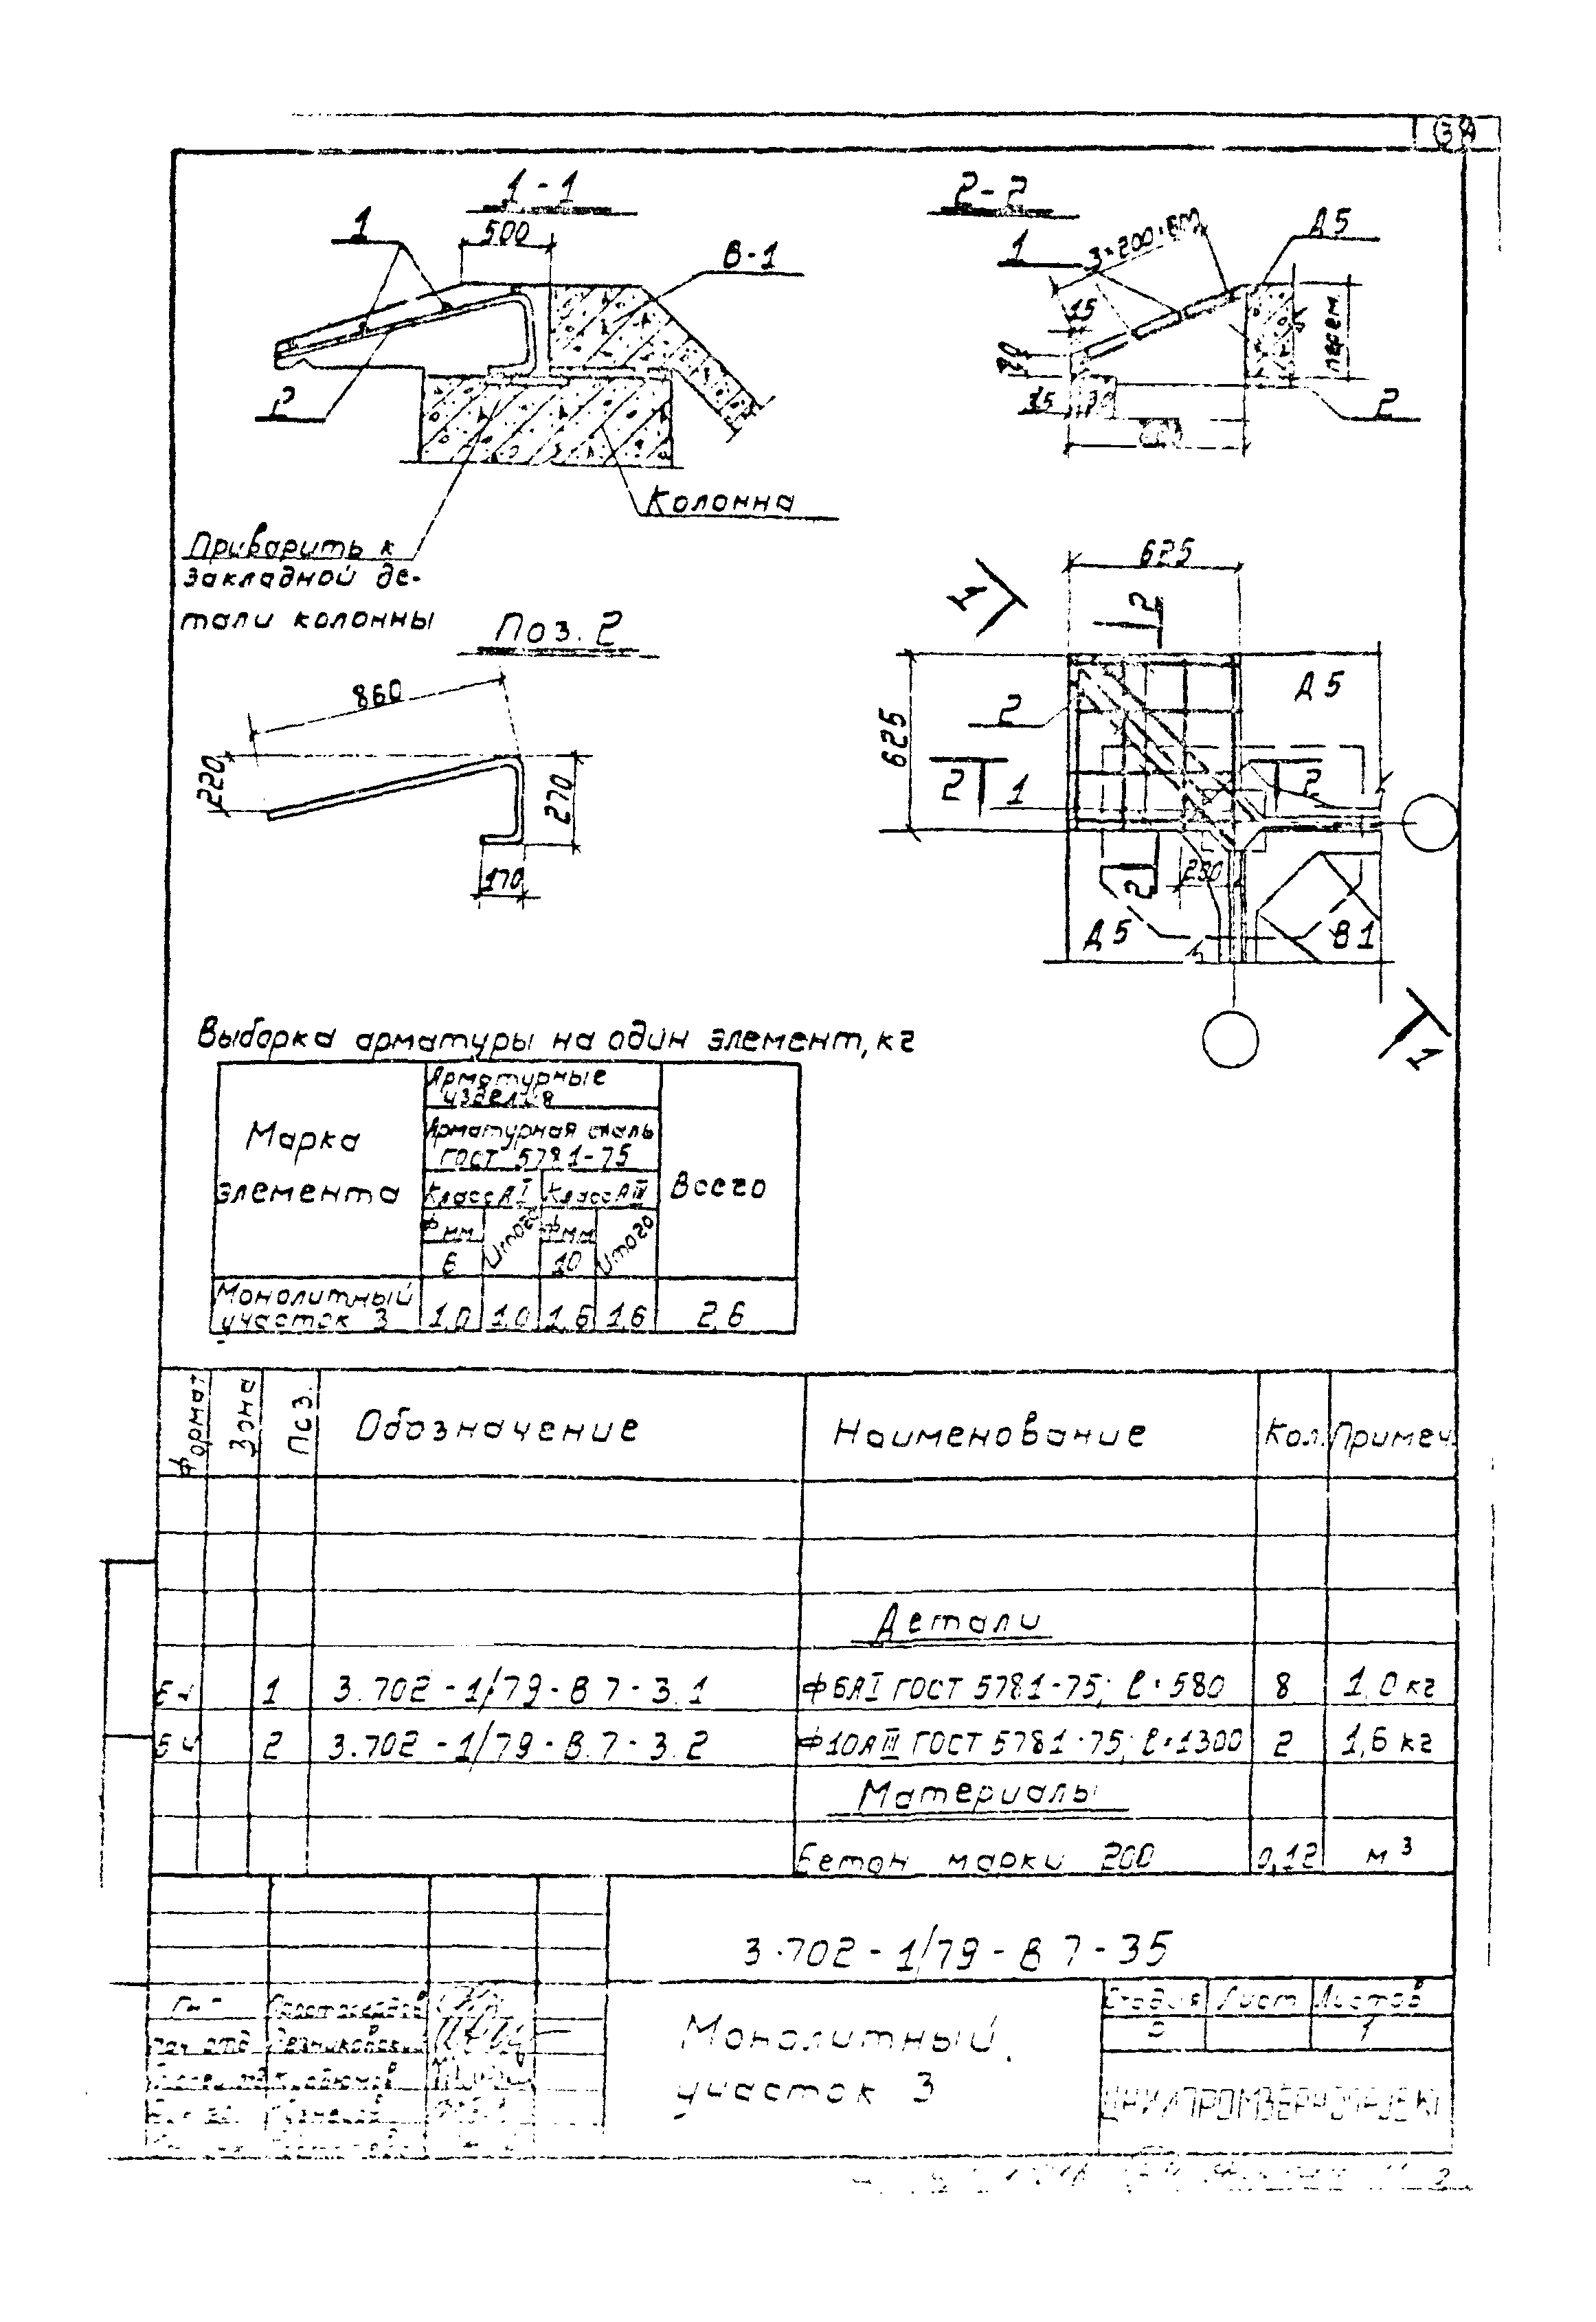 1-1
1
500
В-1
2
Колонна
Приварить к
закладной де-
тали колонны
2-2
1
3×200=600
Д5
15
перем.
35
2
Поз. 2
860
220
270
170
625
1
2
625
2
Д5
2
1
2
2
280
Д5
В1
1
Выборка арматуры на один элемент, кг
Марка
элемента
Арматурные
изделия
Арматурная сталь
ГОСТ 5781-75
Класс АI
Класс АIII
Всего
Ф мм
Итого
Ф мм
Итого
6
10
Монолитный
участок 3
1,0
1,0
1,6
1,6
2,6
Формат
Зона
Поз.
Обозначение
Наименование
Кол.
Примеч.
Детали
БЧ 1 3.702-1/79-В.7-3.1 Ф6АI ГОСТ 5781-75; ℓ=580 8 1,0 кг
БЧ 2 3.702-1/79-В.7-3.2 Ф10АIII ГОСТ 5781-75; ℓ=1300 2 1,6 кг
Материалы
Бетон марки 200 0,12 м³
3.702-1/79-В 7-35
Монолитный
участок 3
Стадия
Лист
Листов
Р
1
ЦНИИПРОМЗЕРНОПРОЕКТ